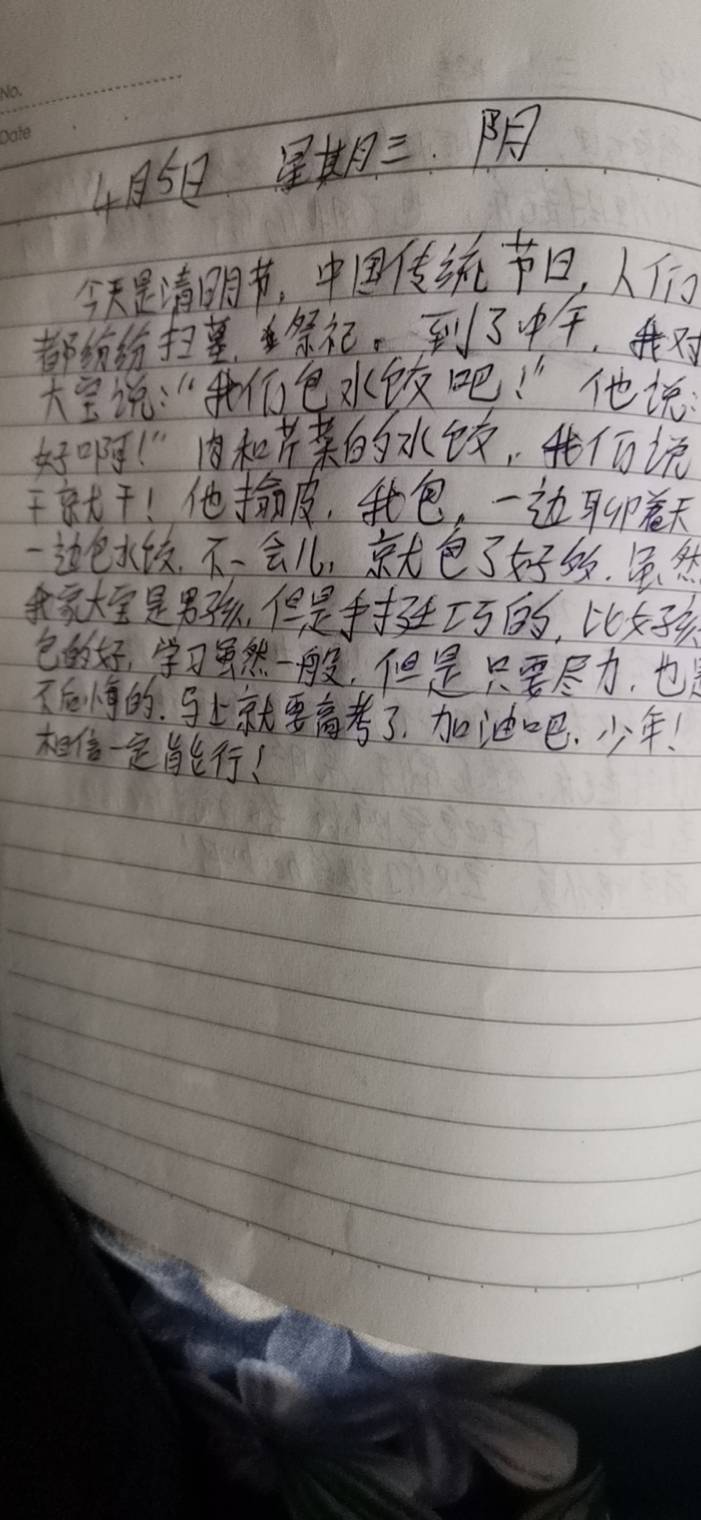 No.
Date
4月5日 星期三. 阴
今天是清明节，中国传统节日，人们
都纷纷扫墓，祭祀。到了中午，我对
大宝说：“我们包水饺吧！”他说：
好啊！”肉和芹菜的水饺，我们说
干就干！他擀皮，我包，一边聊着天
一边包水饺，不一会儿，就包了好多，虽然
我家大宝是男孩，但是手挺巧的，比女孩
包的好，学习虽然一般，但是只要尽力，也是
不后悔的，马上就要高考了，加油吧，少年！
相信一定能行！